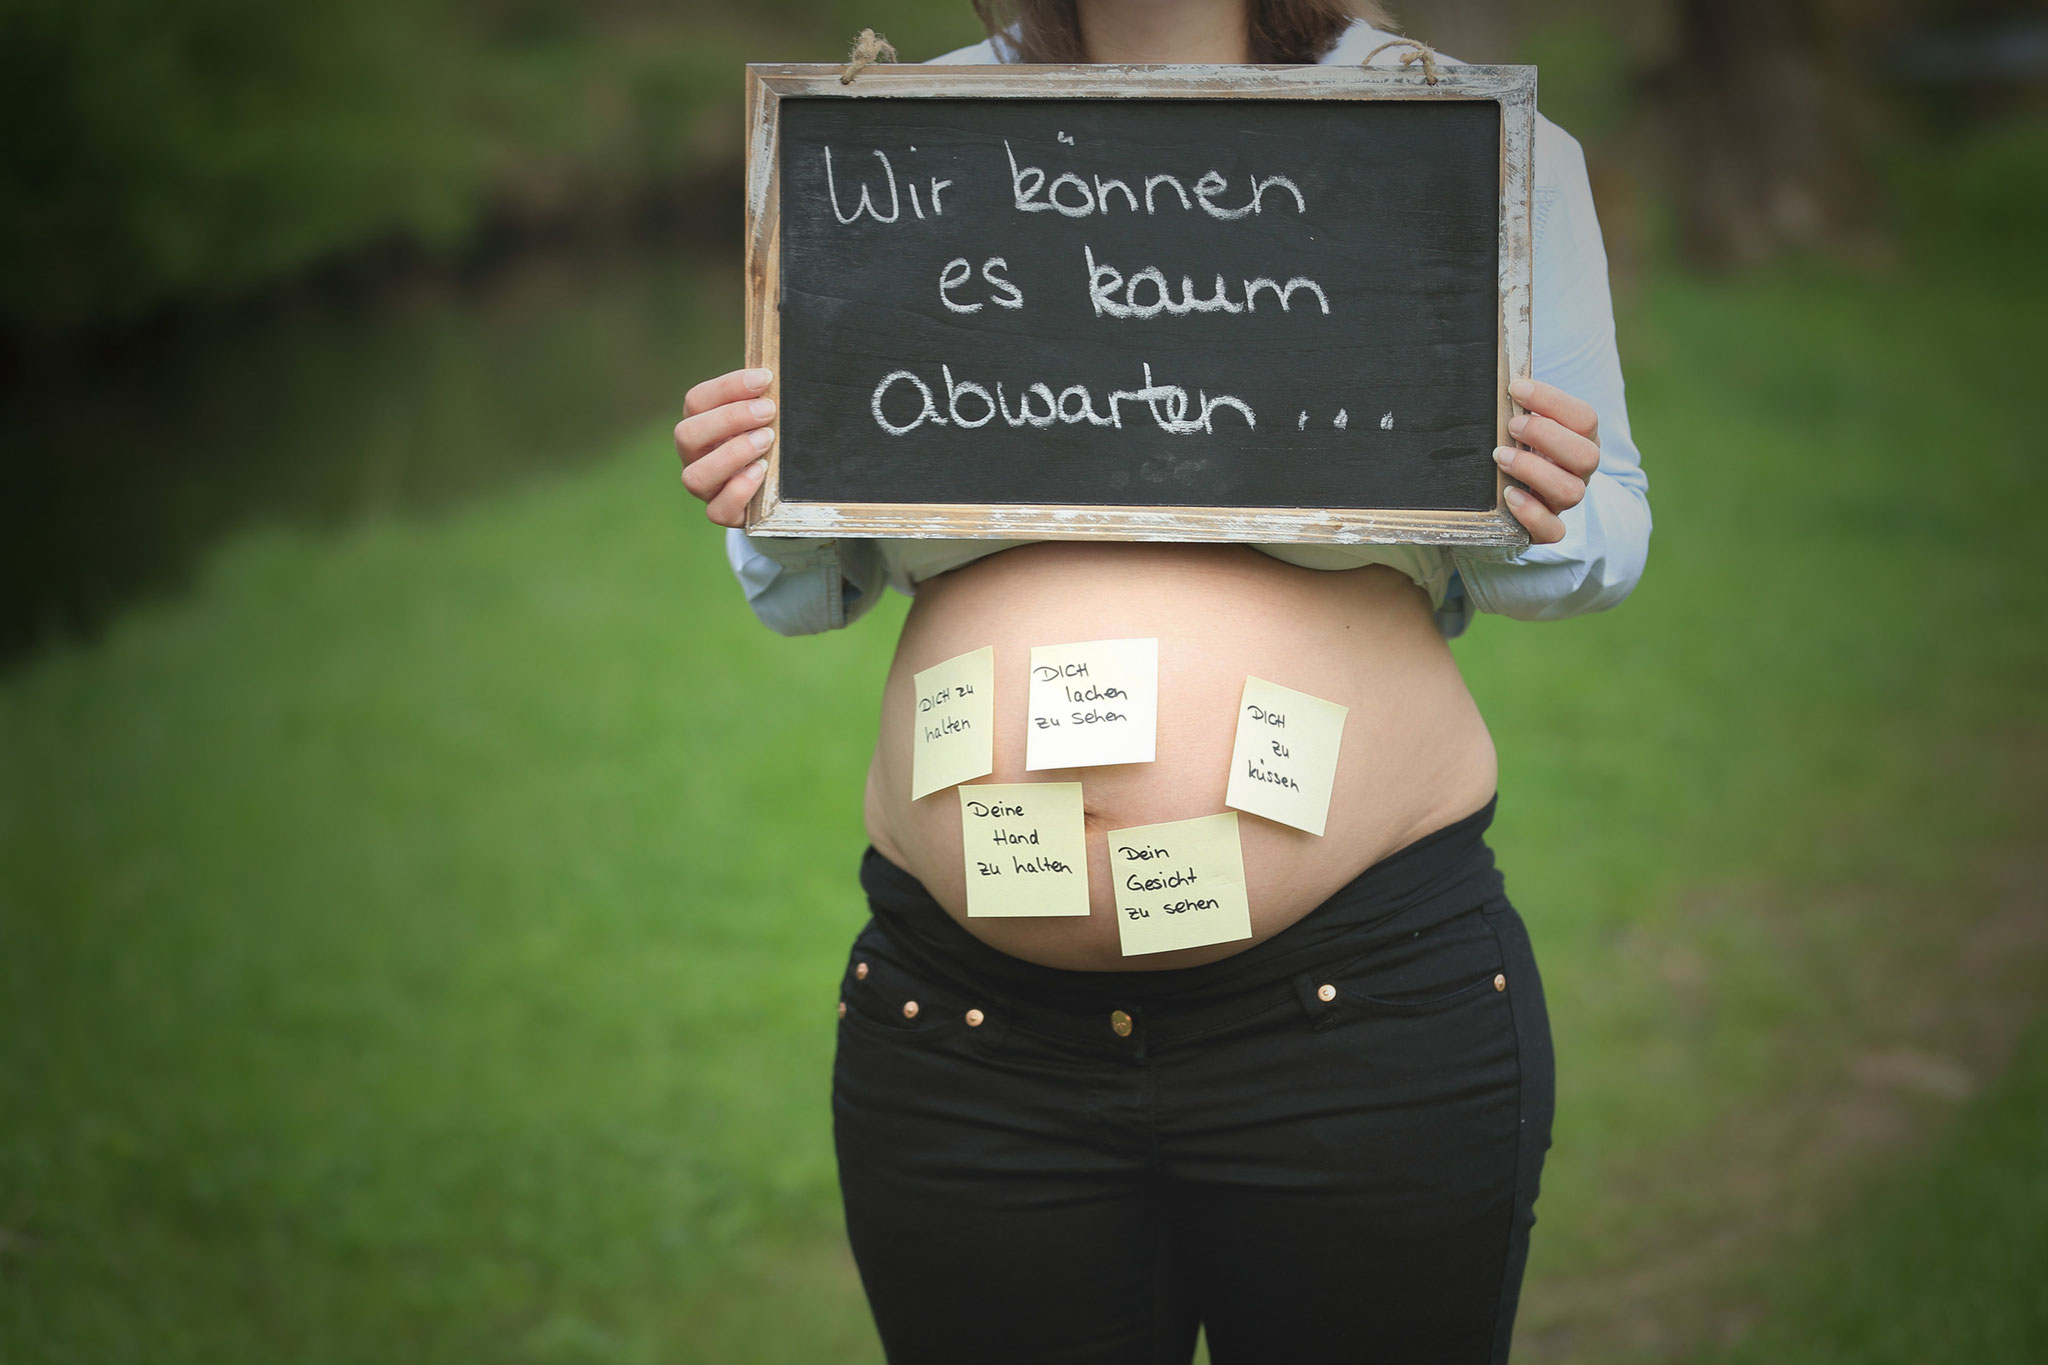 Wir können
es kaum
abwarten ...
DICH zu
halten
DICH
lachen
zu sehen
DICH
zu
küssen
Deine
Hand
zu halten
Dein
Gesicht
zu sehen